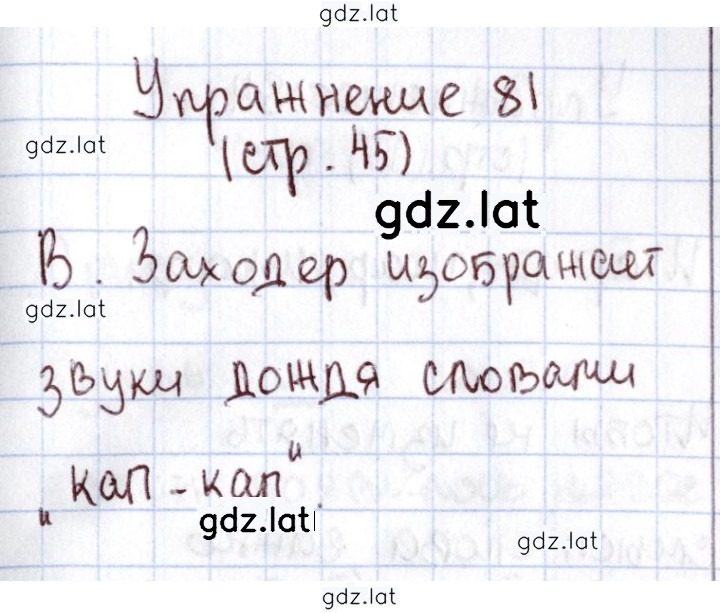 gdz.lat
Упражнение 81
gdz.lat
(стр. 45)
gdz.lat
В. Заходер изображает
gdz.lat
звуки дождя словами
„кап - кап“.
gdz.lat
gdz.lat
gdz.lat